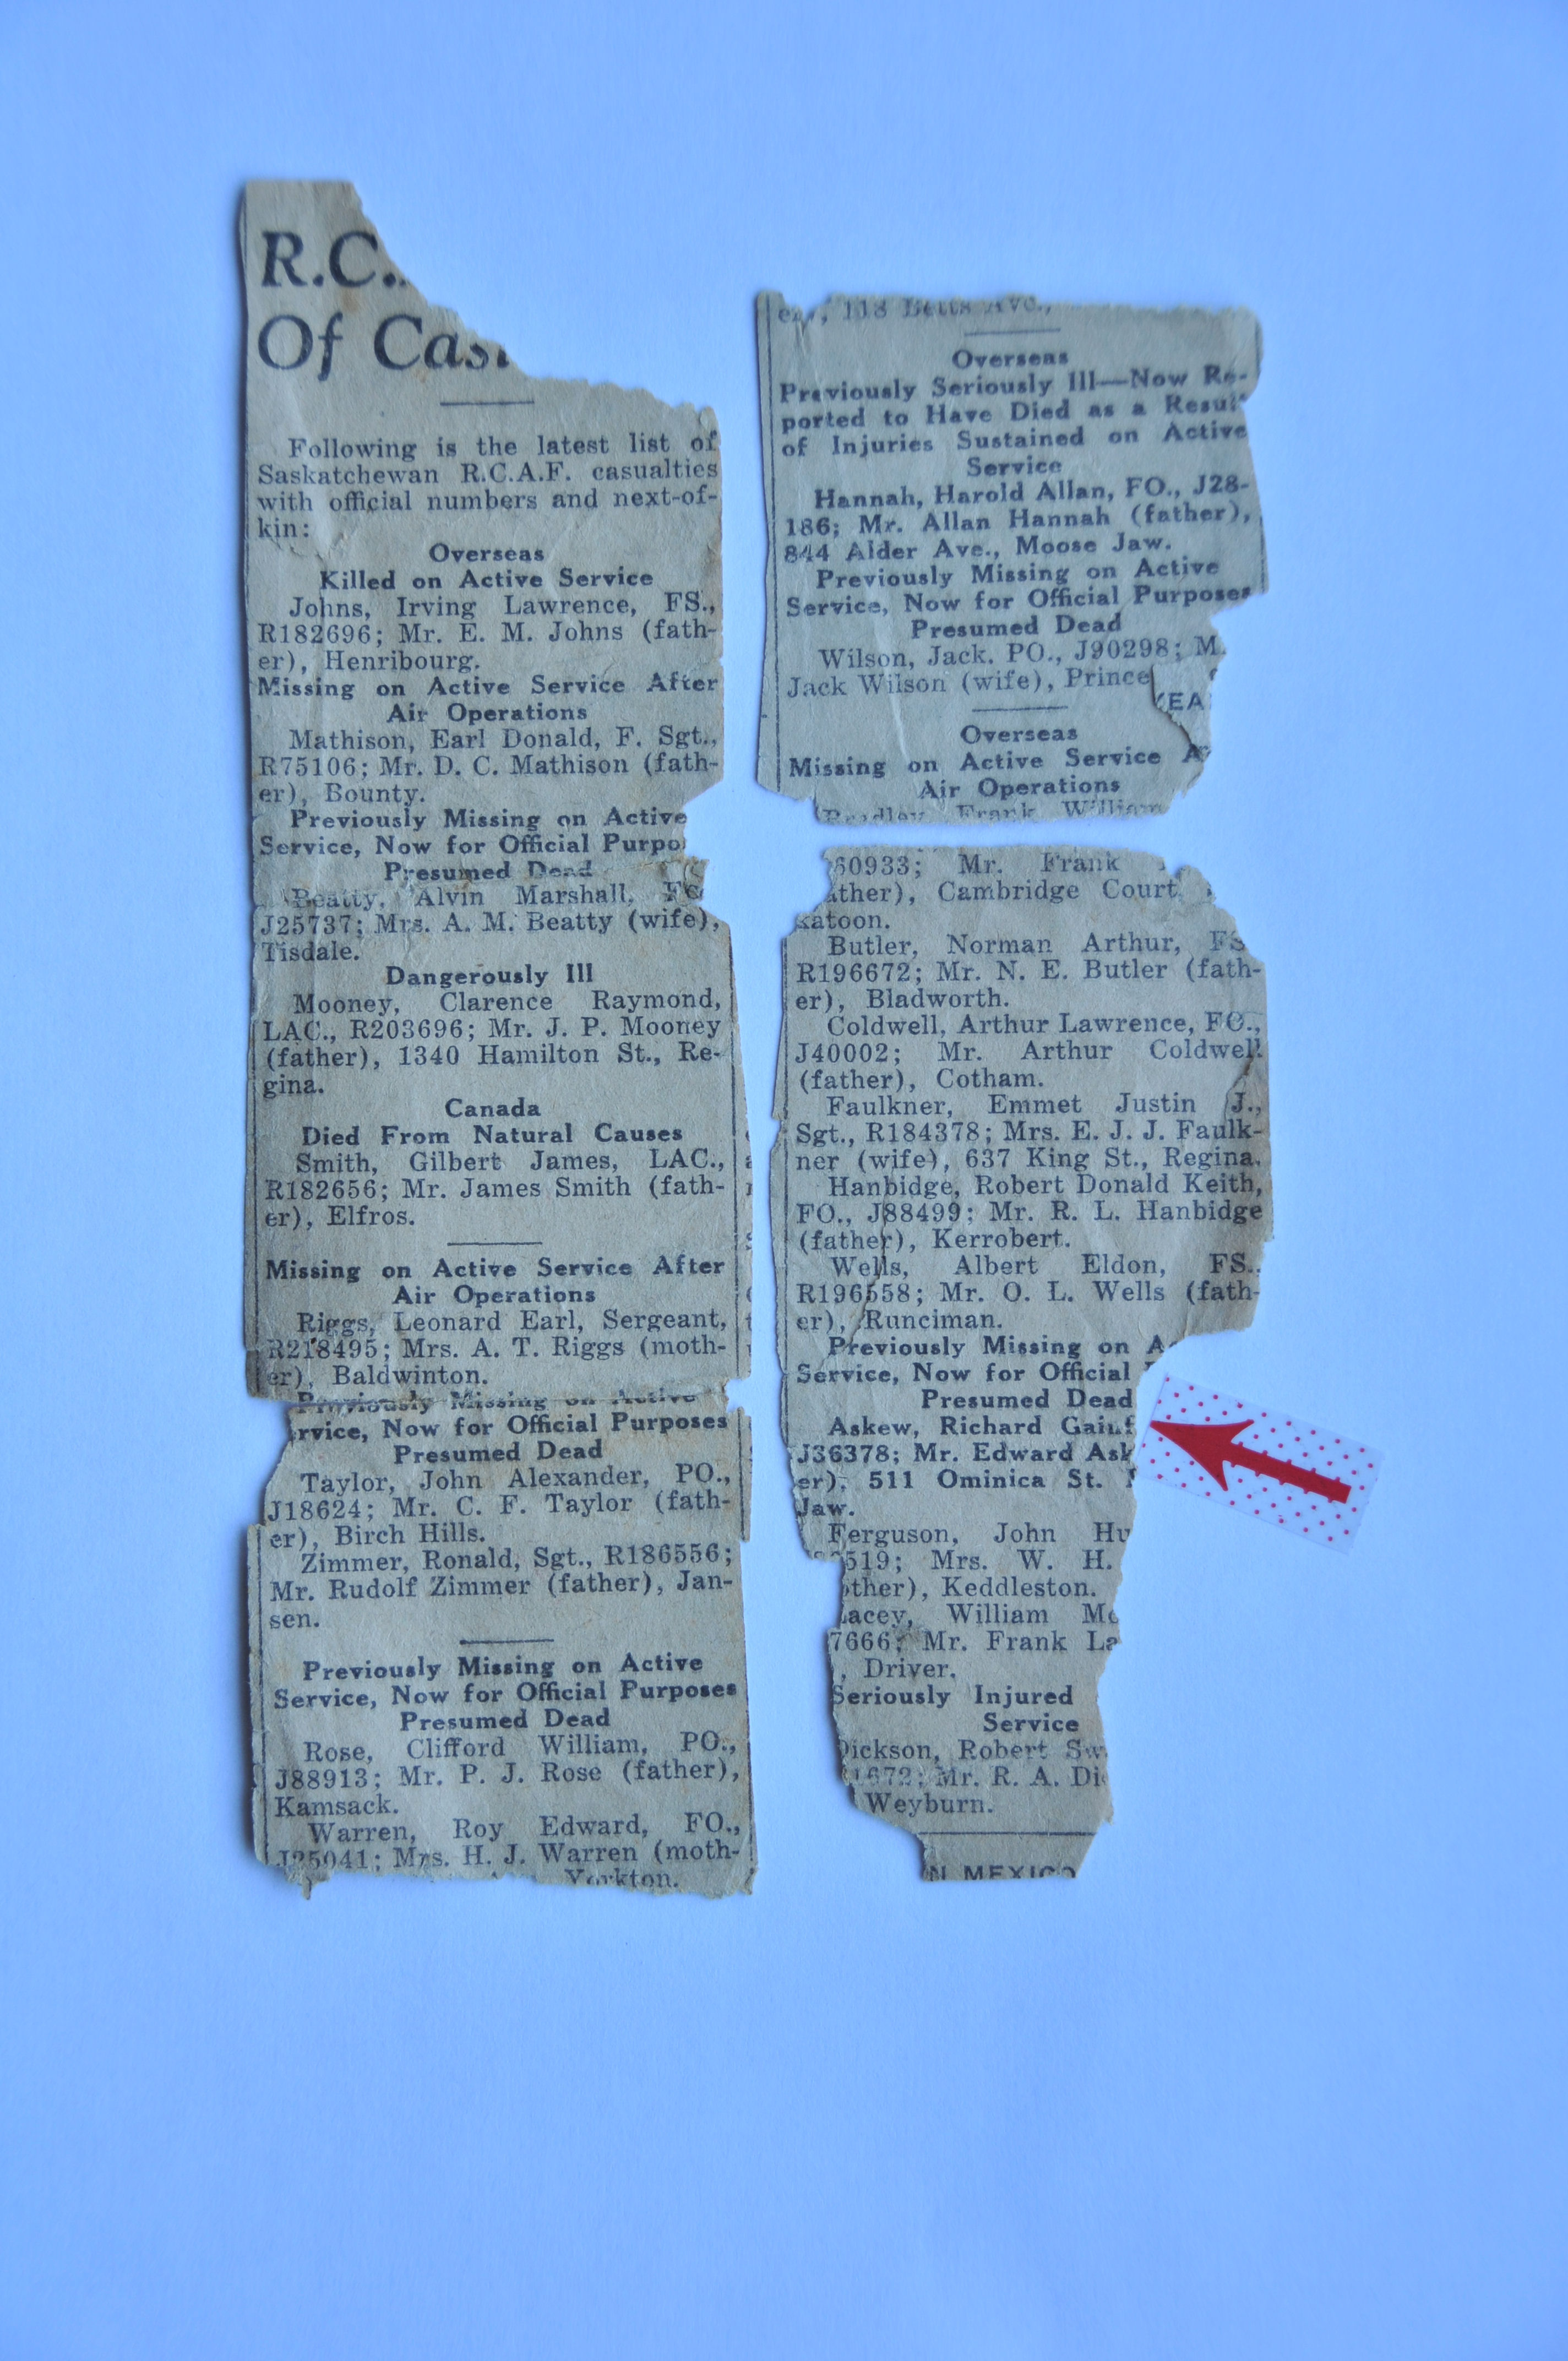 R.C.
Of Cas
Following is the latest list of
Saskatchewan R.C.A.F. casualties
with official numbers and next-of-
kin:
Overseas
Killed on Active Service
Johns, Irving Lawrence, FS.,
R182696; Mr. E. M. Johns (fath-
er), Henribourg.
Missing on Active Service After
Air Operations
Mathison, Earl Donald, F. Sgt.,
R75106; Mr. D. C. Mathison (fath-
er), Bounty.
Previously Missing on Active
Service, Now for Official Purpo
Presumed Dead
Beatty, Alvin Marshall,
J25737; Mrs. A. M. Beatty (wife),
Tisdale.
Dangerously Ill
Mooney, Clarence Raymond,
LAC., R203696; Mr. J. P. Mooney
(father), 1340 Hamilton St., Re-
gina.
Canada
Died From Natural Causes
Smith, Gilbert James, LAC.,
R182656; Mr. James Smith (fath-
er), Elfros.
Missing on Active Service After
Air Operations
Riggs, Leonard Earl, Sergeant,
R218495; Mrs. A. T. Riggs (moth-
er), Baldwinton.
Previously Missing on Active
rvice, Now for Official Purposes
Presumed Dead
Taylor, John Alexander, PO.,
J18624; Mr. C. F. Taylor (fath-
er), Birch Hills.
Zimmer, Ronald, Sgt., R186556;
Mr. Rudolf Zimmer (father), Jan-
sen.
Previously Missing on Active
Service, Now for Official Purposes
Presumed Dead
Rose, Clifford William, PO.,
J88913; Mr. P. J. Rose (father),
Kamsack.
Warren, Roy Edward, FO.,
J25041; Mrs. H. J. Warren (moth-
Yorkton.
118 Betts Ave.,
Overseas
Previously Seriously Ill—Now Re-
ported to Have Died as a Resul
of Injuries Sustained on Active
Service
Hannah, Harold Allan, FO., J28-
186; Mr. Allan Hannah (father),
844 Alder Ave., Moose Jaw.
Previously Missing on Active
Service, Now for Official Purposes
Presumed Dead
Wilson, Jack. PO., J90298; M
Jack Wilson (wife), Prince
EA
Overseas
Missing on Active Service A
Air Operations
Bradley, Frank William
60933; Mr. Frank
ather), Cambridge Court
katoon.
Butler, Norman Arthur, FS
R196672; Mr. N. E. Butler (fath-
er), Bladworth.
Coldwell, Arthur Lawrence, FO.,
J40002; Mr. Arthur Coldwell
(father), Cotham.
Faulkner, Emmet Justin J.,
Sgt., R184378; Mrs. E. J. J. Faulk-
ner (wife), 637 King St., Regina.
Hanbidge, Robert Donald Keith,
FO., J88499; Mr. R. L. Hanbidge
(father), Kerrobert.
Wells, Albert Eldon, FS.,
R196558; Mr. O. L. Wells (fath-
er), Runciman.
Previously Missing on A
Service, Now for Official
Presumed Dead
Askew, Richard Gainf
J36378; Mr. Edward Ask
er), 511 Ominica St.
Jaw.
Ferguson, John Hu
519; Mrs. W. H.
other), Keddleston.
Lacey, William Mc
7666; Mr. Frank La
, Driver.
Seriously Injured
Service
Dickson, Robert Sw
1672; Mr. R. A. Di
Weyburn.
N MEXICO